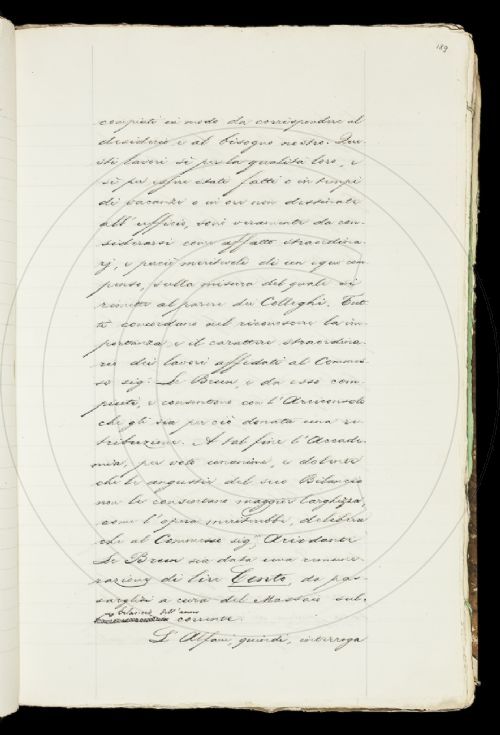 189
compiuti in modo da corrispondere al
desiderio e al bisogno nostro. Que-
sti lavori sì per la qualità loro, e
sì per essere stati fatti o in tempi
di vacanze o in ore non destinate
all' ufficio, sono veramente da con-
siderarsi come affatto straordina-
rj, e perciò meritevoli di un equo com-
penso, sulla misura del quale si
rimette al parere dei Colleghi. Tut-
ti concordano nel riconoscere la im-
portanza e il carattere straordina-
rio dei lavori affidati al Commes-
so sig. Le Brun, e da esso com-
piuti, e consentono con l'Arciconsolo
che gli sia per ciò donata una re-
tribuzione. A tal fine l'Accade-
mia, per voto unanime, e dolente
che le angustie del suo Bilancio
non le consentano maggior larghezza,
come l'opera meriterebbe, delibera
che al Commesso sig. Aristodante
Le Brun sia data una remune-
razione di Lire Cento, da pas-
sarglisi a cura del Massaio sul
bilancio dell'anno
corrente.
L' Alfani, quindi, interroga